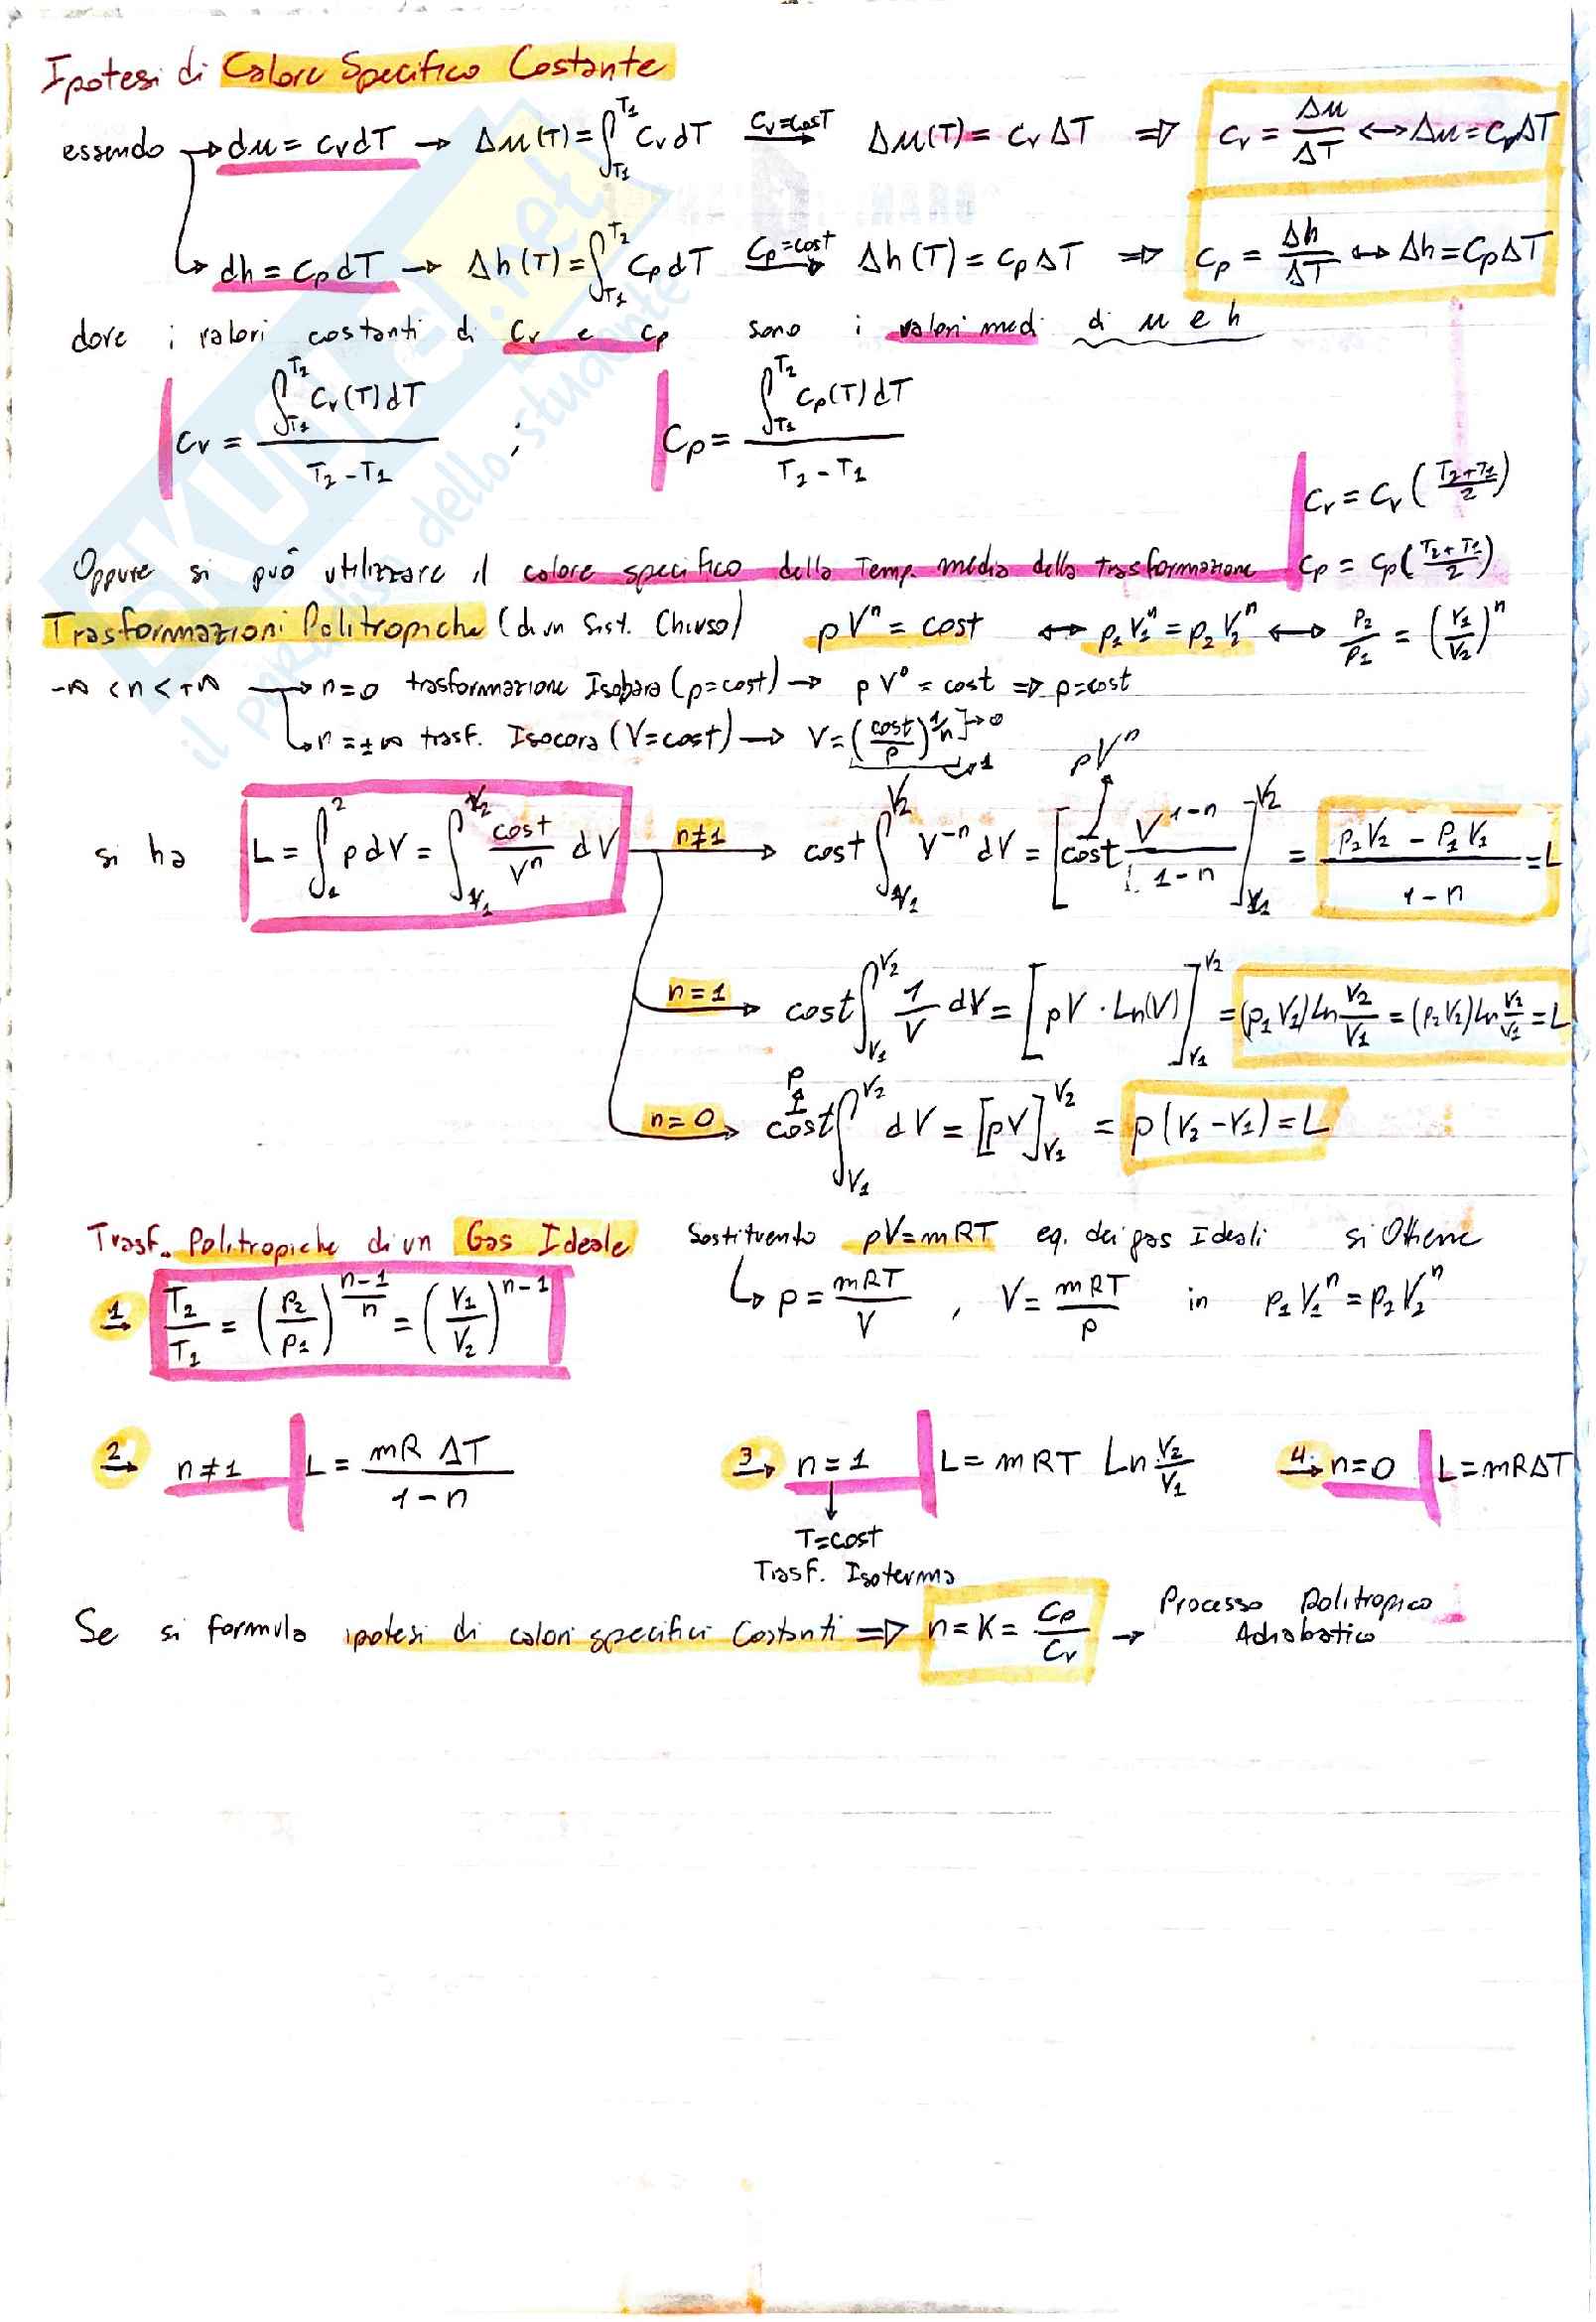 Ipotesi di Calore Specifico Costante
essendo → du = cv dT → Δu(T) = ∫_T1^T2 cv dT —cv=cost→ Δu(T) = cv ΔT ⇒ cv = Δu/ΔT ↔ Δu = cv ΔT
↳ dh = cp dT → Δh(T) = ∫_T1^T2 cp dT —cp=cost→ Δh(T) = cp ΔT ⇒ cp = Δh/ΔT ↔ Δh = cp ΔT
dove i valori costanti di cv e cp sono i valori medi di u e h
cv = ∫_T1^T2 cv(T)dT / (T2 - T1) ; cp = ∫_T1^T2 cp(T)dT / (T2 - T1)
cv = cv((T2+T1)/2)
Oppure si può utilizzare il calore specifico della Temp. media della trasformazione cp = cp((T2+T1)/2)
Trasformazioni Politropiche (di un Sist. Chiuso) pV^n = cost ↔ p1 V1^n = p2 V2^n ↔ p2/p1 = (V1/V2)^n
-∞ < n < +∞ → n=0 trasformazione Isobara (p=cost) → pV^0 = cost ⇒ p=cost
↳ n = ±∞ trasf. Isocora (V=cost) → V = (cost/p)^(1/n) ]→0 → 1
pV^n
si ha L = ∫_1^2 p dV = ∫_V1^V2 cost/V^n dV —n≠1→ cost ∫_V1^V2 V^-n dV = [cost V^(1-n)/(1-n)]_V1^V2 = (p2V2 - p1V1)/(1-n) = L
n=1 → cost ∫_V1^V2 1/V dV = [pV · Ln(V)]_V1^V2 = (p1V1) Ln V2/V1 = (p2V2) Ln V2/V1 = L
p
n=0 → cost ∫_V1^V2 dV = [pV]_V1^V2 = p(V2-V1) = L
Trasf. Politropiche di un Gas Ideale Sostituento pV=mRT eq. dei gas Ideali si Ottiene
1 → T2/T1 = (p2/p1)^((n-1)/n) = (V1/V2)^(n-1) ↳ p = mRT/V , V = mRT/p in p1 V1^n = p2 V2^n
2 → n≠1 L = mR ΔT/(1-n) 3 → n=1 L = mRT Ln V2/V1 4 → n=0 L=mRΔT
T=cost
Trasf. Isoterma
Se si formula ipotesi di calori specifici Costanti ⇒ n=K= cp/cv → Processo Politropico Adiabatico
SKUOLA.net
il portale dello studente